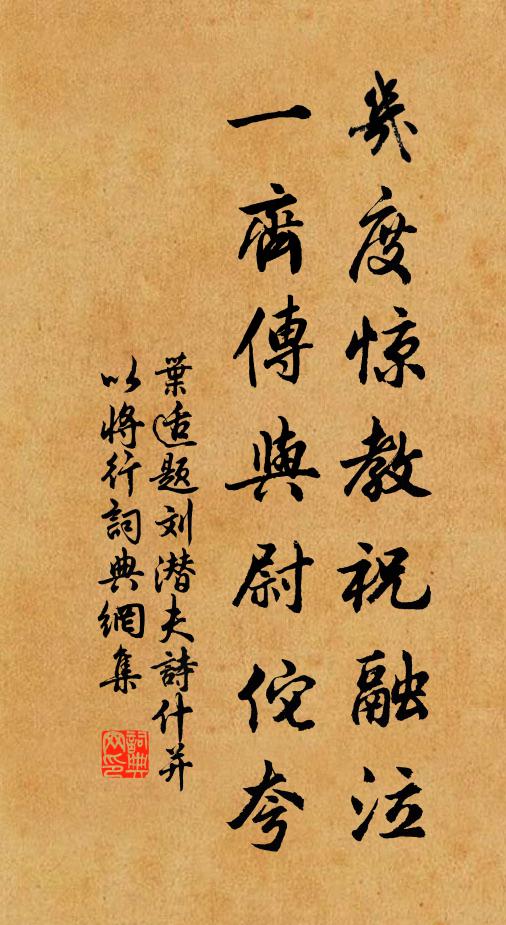 幾度惊教祝融泣
一齊傳與尉佗夸
葉适题刘潜夫詩什并
以将行詞典網集
詞典網印